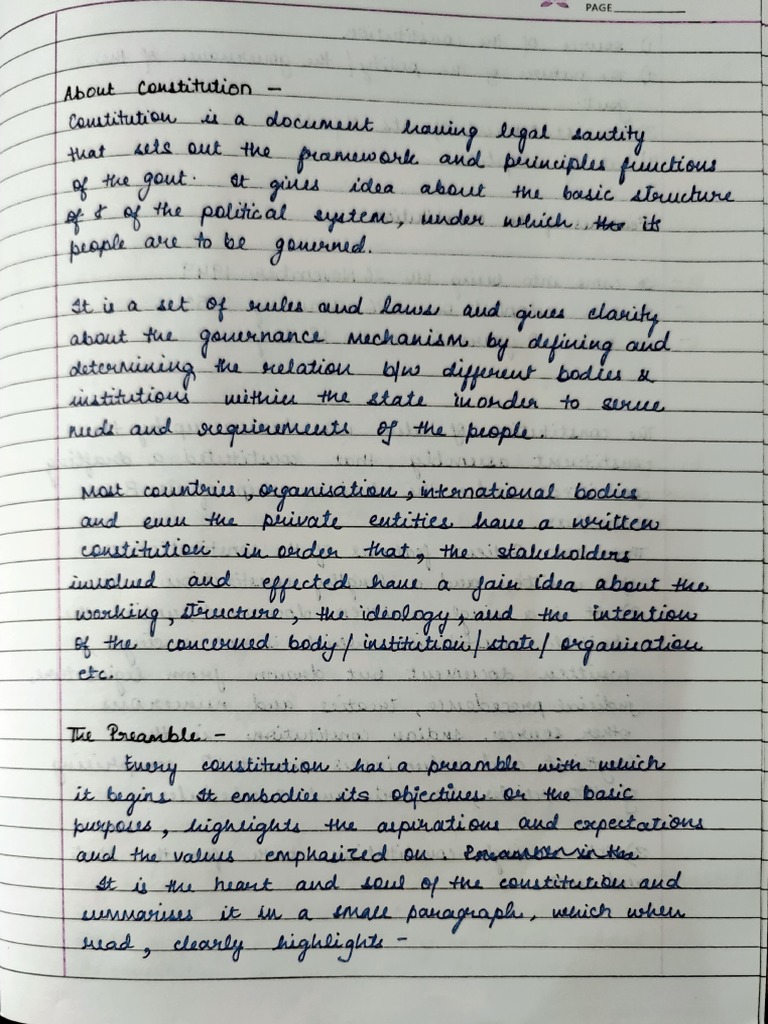 PAGE
About Constitution -
Constitution is a document having legal santity
that sets out the framework and principles functions
of the govt. It gives idea about the basic structure
of & of the political system, under which the its
people are to be governed.
It is a set of rules and laws and gives clarity
about the governance mechanism by defining and
determining the relation b/w different bodies &
institutions within the state inorder to serve
needs and requirements of the people.
Most countries, organisation, international bodies
and even the private entities have a written
constitution in order that, the stakeholders
involved and effected have a fair idea about the
working, structure, the ideology, and the intention
of the concerned body/ institution/ state/ organisation
etc.
The Preamble -
Every constitution has a preamble with which
it begins. It embodies its objectives or the basic
purposes, highlights the aspirations and expectations
and the values emphasized on.
It is the heart and soul of the constitution and
summarises it in a small paragraph, which when
read, clearly highlights -